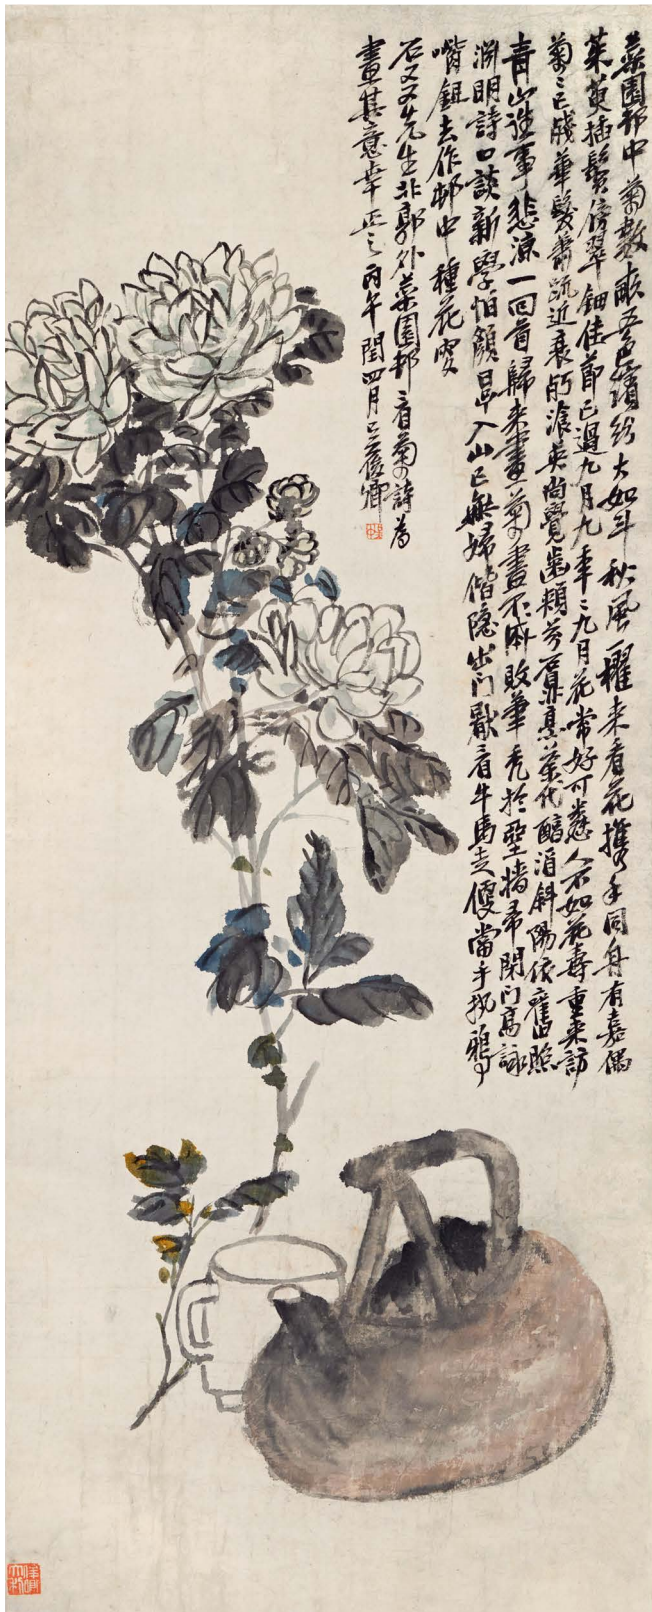 菜園邨中菊數畝五色繽紛大如斗秋風一櫂來看花攜手同舟有嘉偶
茱萸插鬢倚翠鈿佳節已過九月九年〻九月花常好可憐人不如花壽重來訪
菊〻已殘華髮蕭疏近衰朽湌英尚覺齒頰芬煮茶代酒斜陽依舊照
青山往事悲涼一回首歸來畫菊畫不成敗筆禿於堊牆帚閉門高詠
淵明詩口談新學怕顏入山已無婦偕隱出門厭看牛馬走便當手執鴉
觜鉏去作邨中種花叟
石又又先生北郭外菜園邨〻看菊詩為
畫其意幸正之丙午閏四月吳俊卿